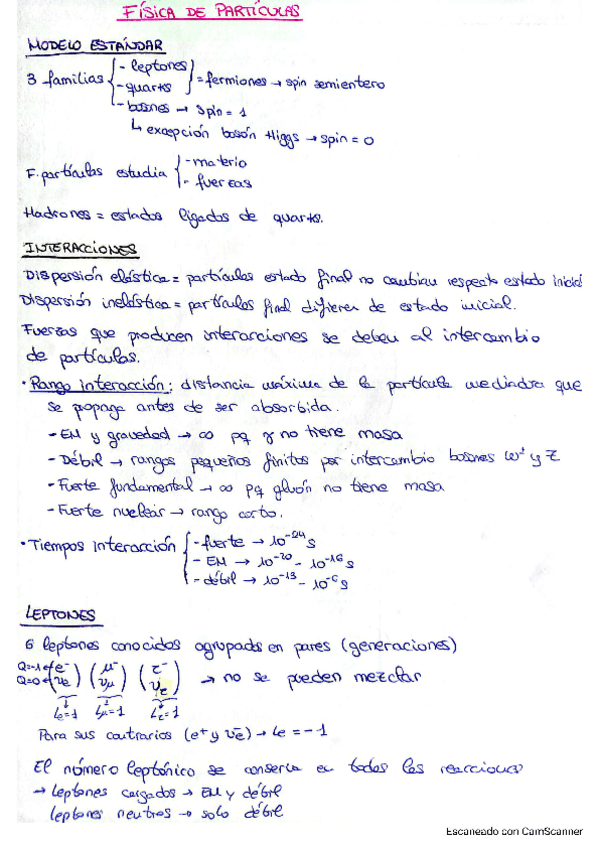 FÍSICA DE PARTÍCULAS
MODELO ESTÁNDAR
3 familias { - leptones
- quarks } = fermiones → spin semientero
- bosones → spin = 1
↳ excepción bosón Higgs → spin = 0
F. partículas estudia { - materia
- fuerzas
Hadrones = estados ligados de quarks.
INTERACCIONES
Dispersión elástica = partículas estado final no cambian respecto estado inicial
Dispersión inelástica = partículas final difieren de estado inicial.
Fuerzas que producen interacciones se deben al intercambio
de partículas.
• Rango interacción: distancia máxima de la partícula mediadora que
se propaga antes de ser absorbida.
- EM y gravedad → ∞ pq γ no tiene masa
- Débil → rangos pequeños finitos por intercambio bosones W± y Z
- Fuerte fundamental → ∞ pq gluón no tiene masa
- Fuerte nuclear → rango corto.
• Tiempos interacción { - fuerte → 10⁻²⁴ s
- EM → 10⁻²⁰ - 10⁻¹⁶ s
- débil → 10⁻¹³ - 10⁻⁶ s
LEPTONES
6 leptones conocidos agrupads en pares (generaciones)
Q=-1 ← (e⁻) (μ⁻) (τ⁻)
Q=0 ← (νe) (νμ) (ντ) → no se pueden mezclar
Le=1 Lμ=1 Lτ=1
Para sus contrarios (e⁺ y ν̄e) → Le = -1
El número leptónico se conserva en todas las reacciones
→ leptones cargados → EM y débil
leptones neutros → solo débil
Escaneado con CamScanner